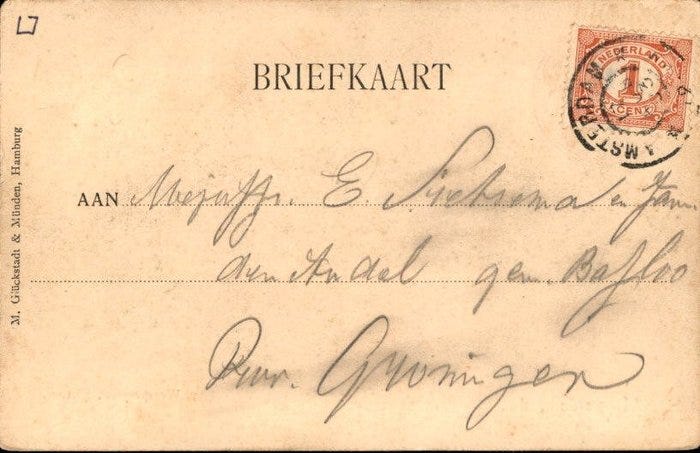 BRIEFKAART
NEDERLAND
1
CENT
AMSTERDAM
AAN Mejuffr. E. Sietsema en Fam
den Andel gem. Bafloo
Prov. Groningen
M. Glückstadt & Münden, Hamburg